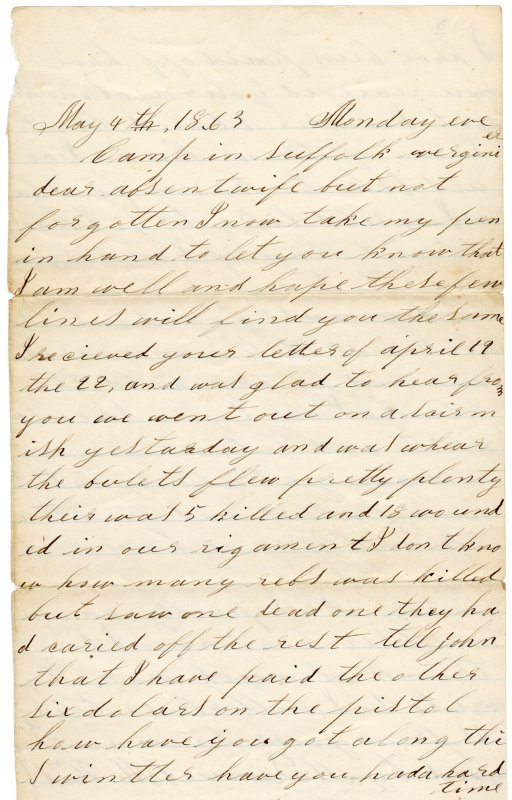 May 4th, 1863 Monday eve
Camp in Suffolk vergini
dear absent wife but not
forgotten I now take my pen
in hand to let you know that
I am well and hope these few
lines will find you the same
I recieved your letter of april 19
the 22, and was glad to hear from
you we went out on a scirm
ish yestarday and was whear
the bulets flew pretty plenty
their was 5 killed and 18 wound
ed in our rigament I dont kno
w how many rebs was killed
but saw one dead one they ha
d caried off the rest tell john
that I have paid the other
six dolars on the pistol
how have you got along thi
s winter have you had a hard
time